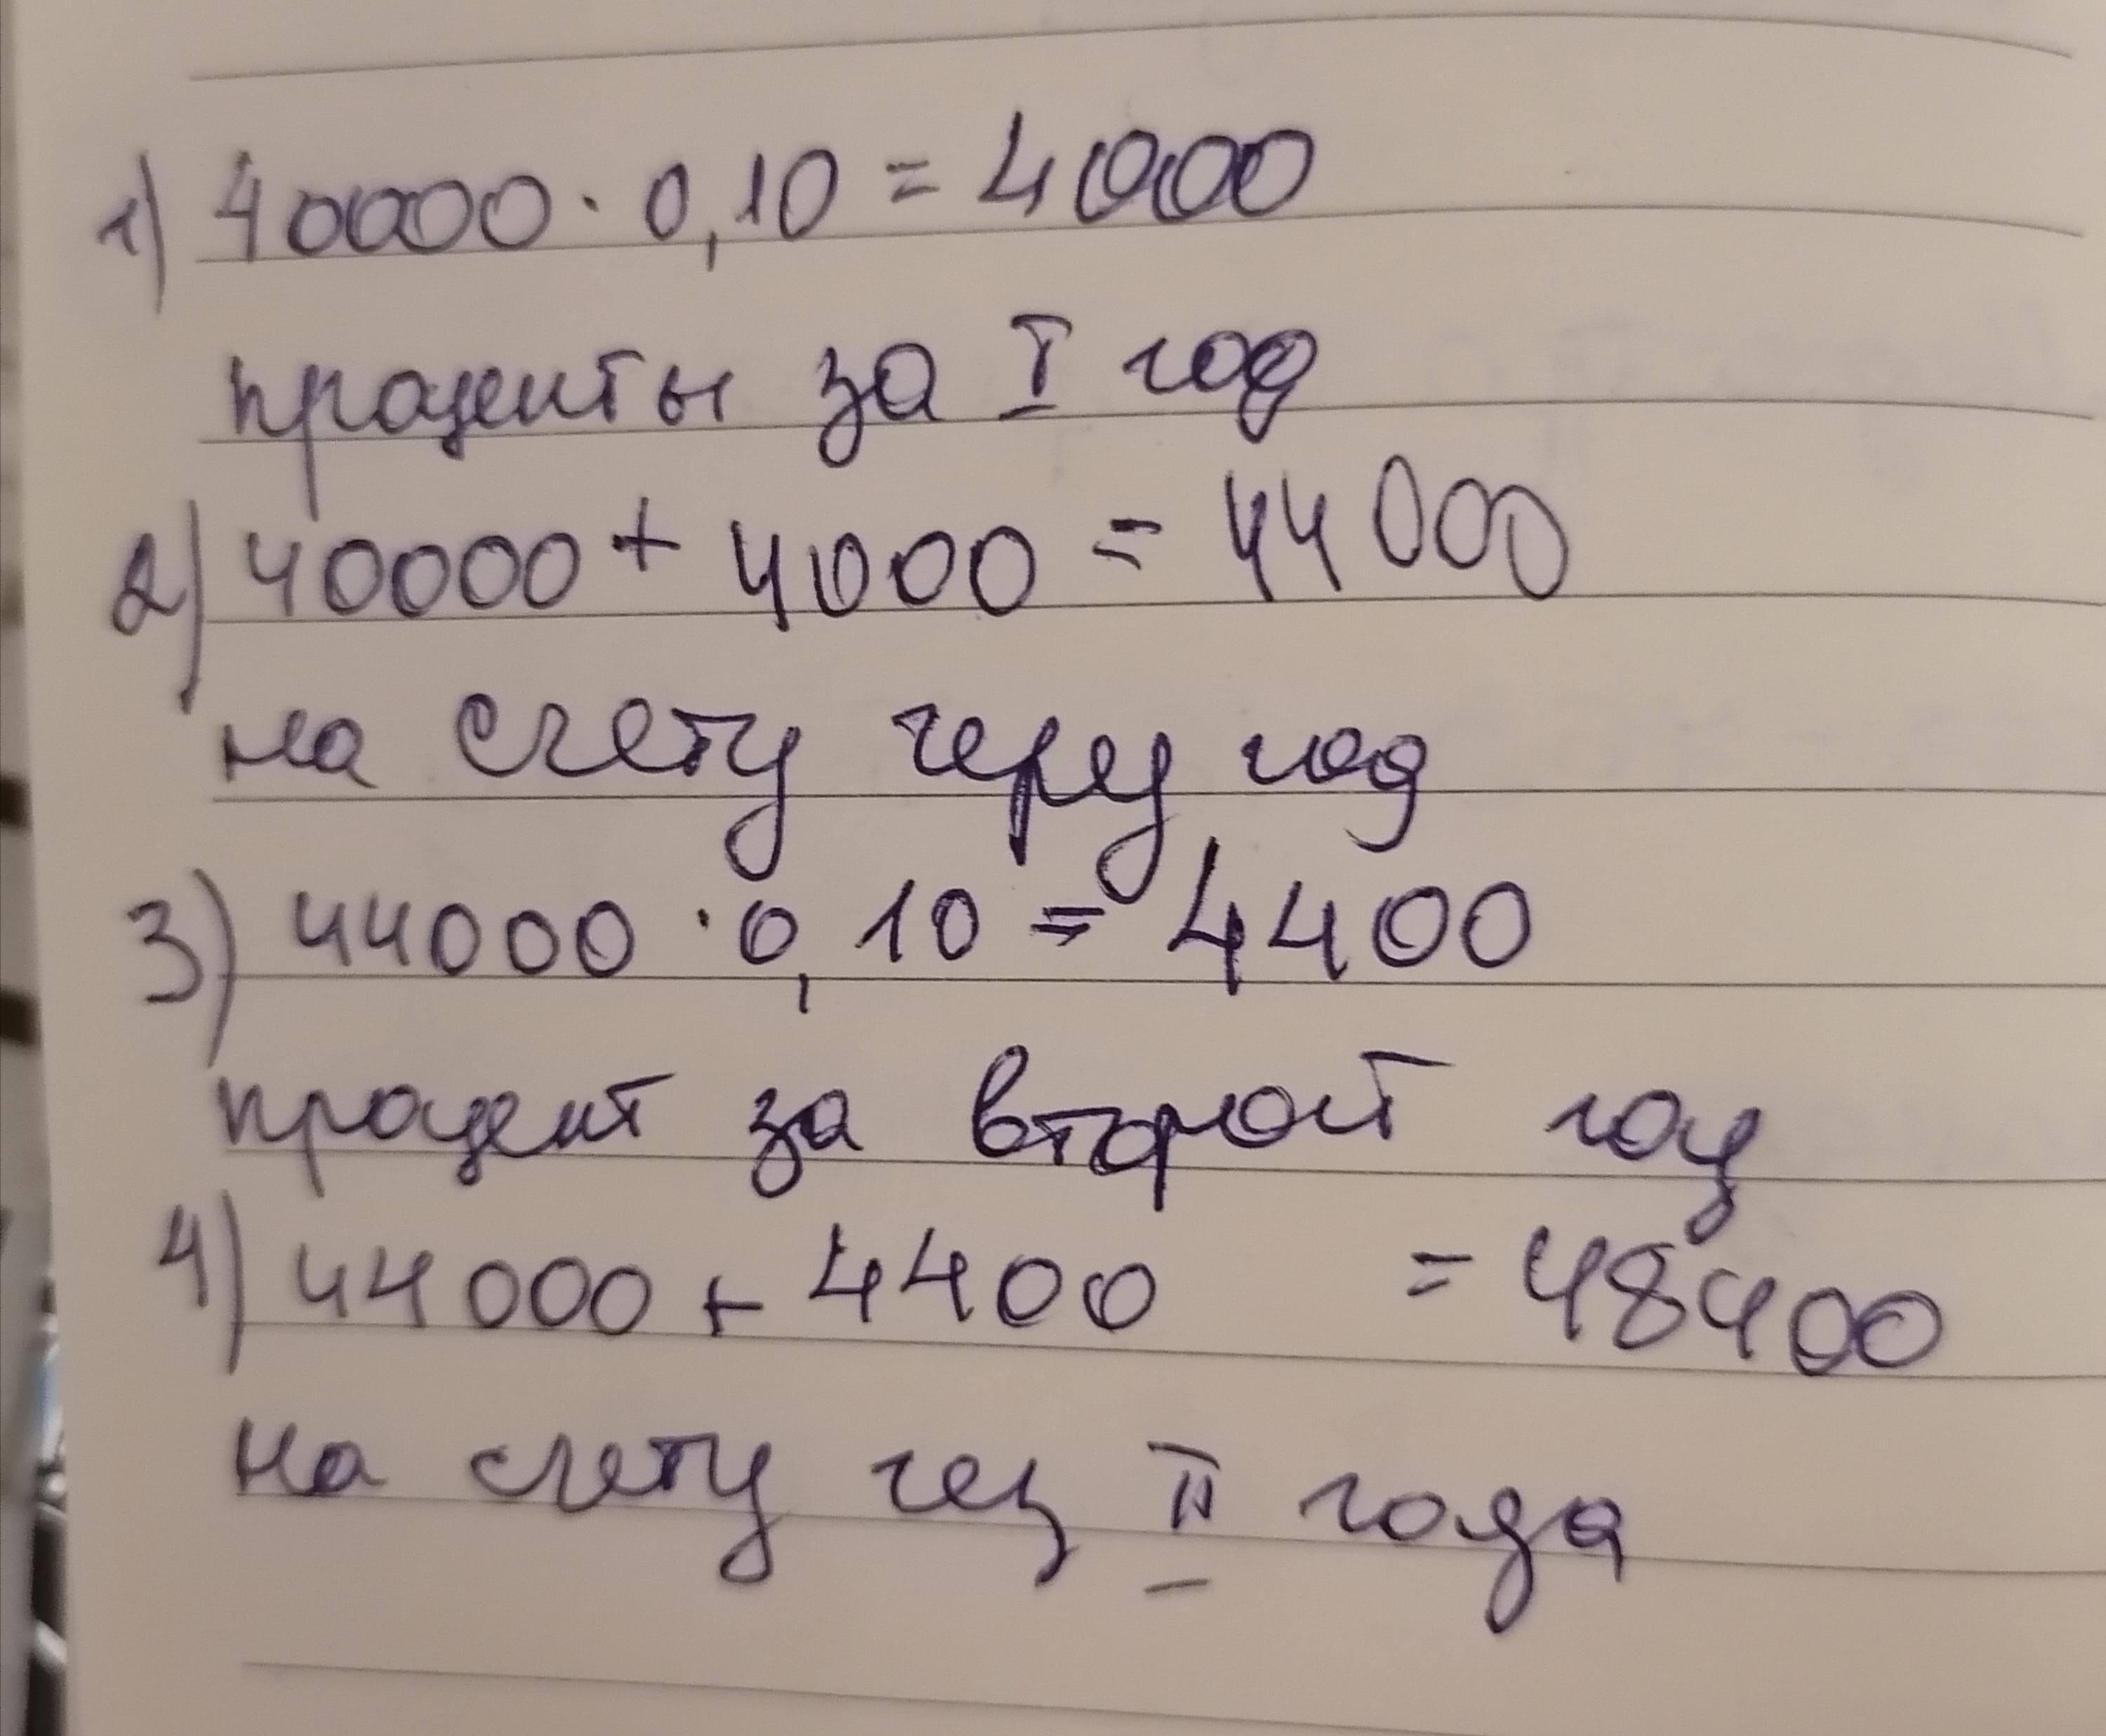 1) 40000 · 0,10 = 4000
проценты за I год
2) 40000 + 4000 = 44000
на счету через год
3) 44000 · 0,10 = 4400
процент за второй год
4) 44000 + 4400 = 48400
на счету чез II года